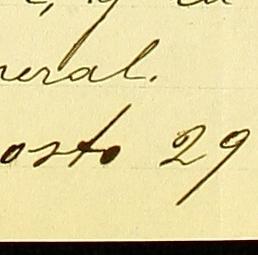 neral.
osto 29